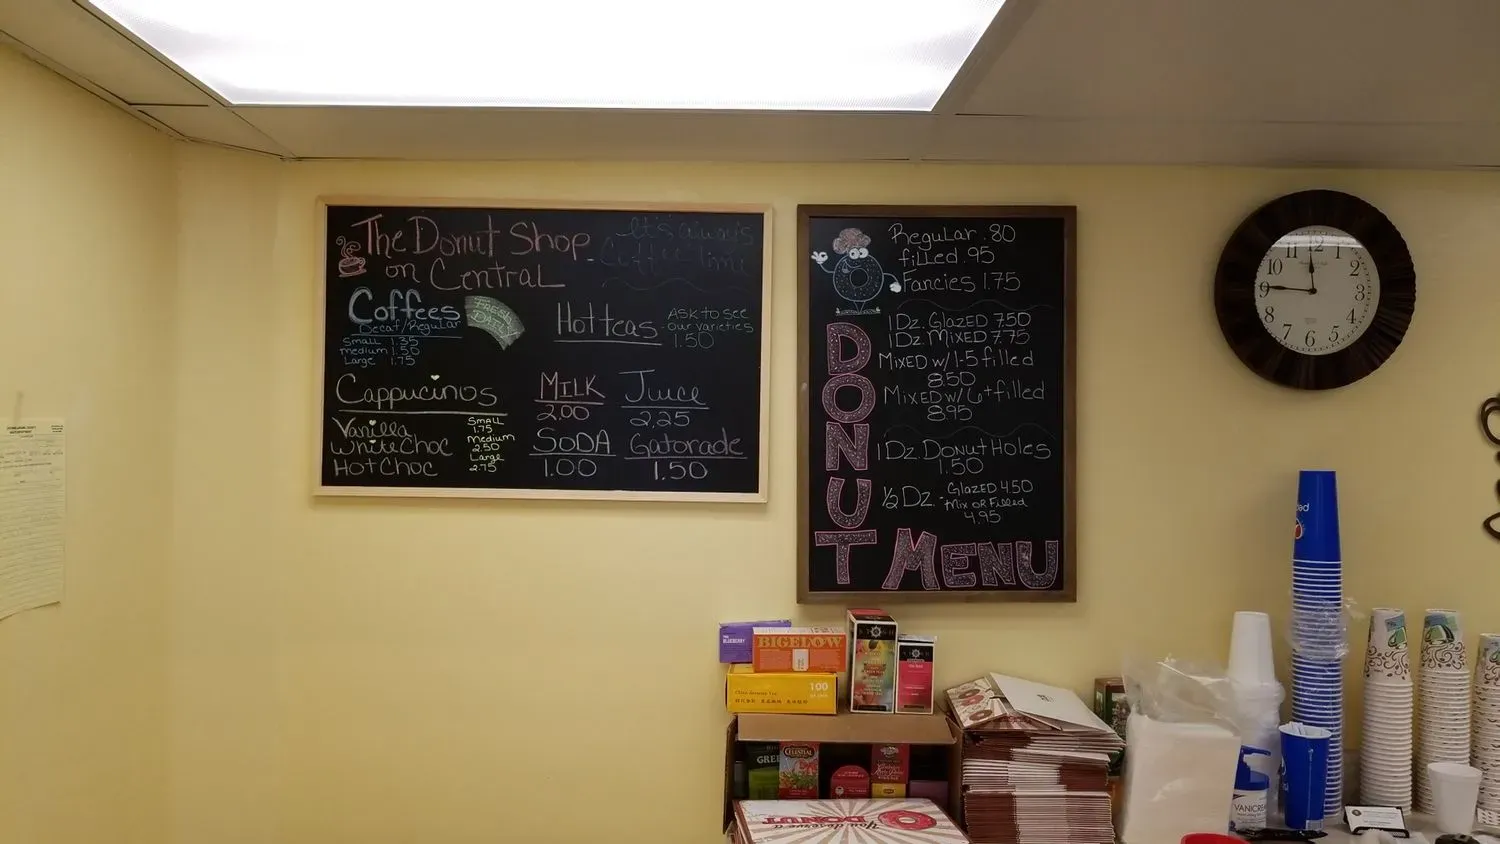 The Donut Shop
on Central
It's always
Coffee Time
Coffees
Decaf/Regular
Small 1.35
medium 1.50
Large 1.75
Hot teas
Ask to see
our varieties
1.50
Cappucinos
Vanilla
White Choc
Hot Choc
Small
1.75
Medium
2.50
Large
2.75
Milk
2.00
Juice
2.25
Soda
1.00
Gatorade
1.50
Regular .80
filled .95
Fancies 1.75
1 Dz. Glazed 7.50
1 Dz. Mixed 7.75
Mixed w/ 1-5 filled
8.50
Mixed w/ 6+ filled
8.95
1 Dz. Donut Holes
1.50
1/2 Dz. - Glazed 4.50
Mix or Filled
4.95
DONUT MENU
12
1
2
3
4
5
6
7
8
9
10
11
BIGELOW
100
CELESTIAL
You deserve a
DONUT
VANICREAM